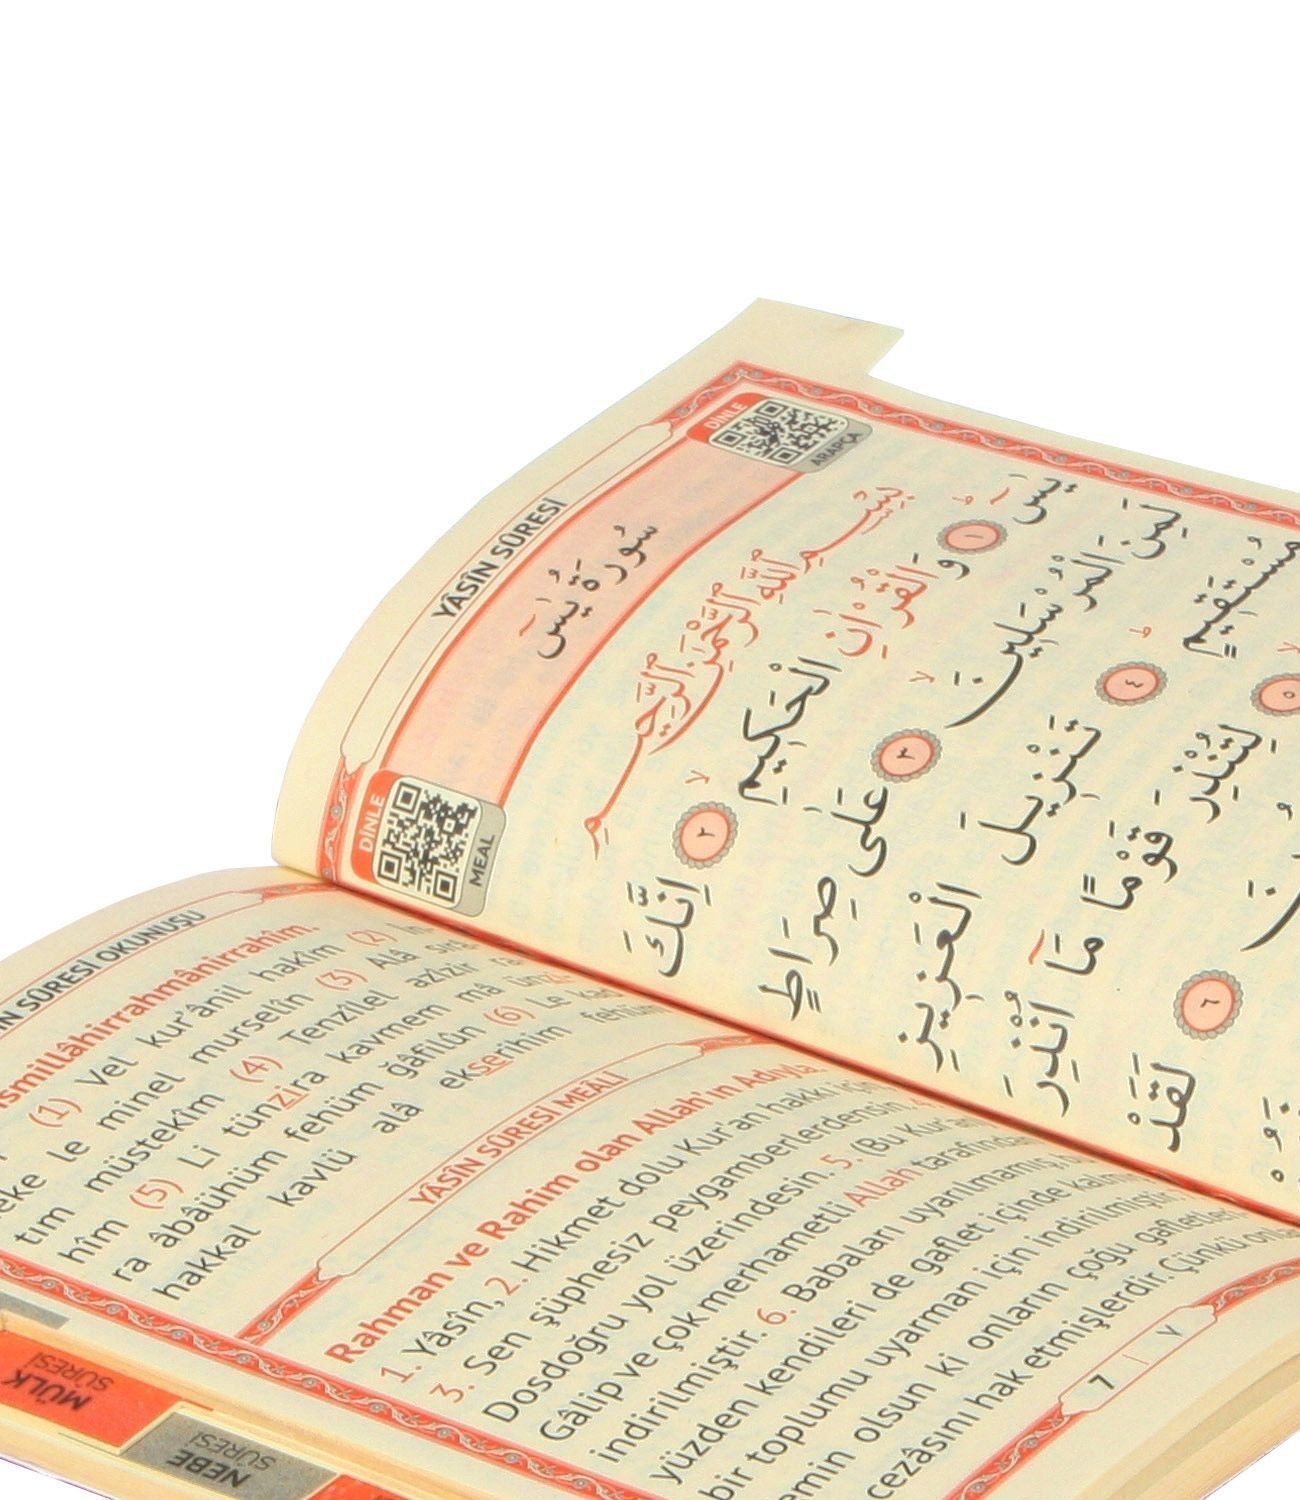 YÂSÎN SÛRESİ
DİNLE
ARAPÇA
سُورَةُ يٰسٓ
DİNLE
MEAL
بِسْمِ اللّٰهِ الرَّحْمٰنِ الرَّحِيمِ
يٰسٓ ۚ ﴿١﴾ وَالْقُرْاٰنِ الْحَكِيمِ ۙ ﴿٢﴾ اِنَّكَ
لَمِنَ الْمُرْسَلِينَ ۙ ﴿٣﴾ عَلٰى صِرَاطٍ
مُسْتَقِيمٍ ۜ ﴿٤﴾ تَنْزِيلَ الْعَزِيزِ
﴿٥﴾ لِتُنْذِرَ قَوْمًا مَٓا اُنْذِرَ
﴿٦﴾ لَقَدْ
SÛRESİ OKUNUŞU
(1) Vel kur'ânil hakîm (2) İn-
neke le minel murselîn (3) Alâ sırâ-
tım müstekîm (4) Tenzîlel azîzir ra-
hîm (5) Li tünzira kavmem mâ ünzi-
ra âbâühüm fehüm ğâfilûn (6) Le kad
hakkal kavlü alâ ekserihim fehüm
YÂSÎN SÛRESİ MEÂLİ
Rahman ve Rahim olan Allah'ın Adıyla.
1. Yâsîn, 2. Hikmet dolu Kur'an hakkı için
3. Sen şüphesiz peygamberlerdensin. 4.
Dosdoğru yol üzerindesin. 5. (Bu Kur'an
Gâlip ve çok merhametli Allah tarafından
indirilmiştir. 6. Babaları uyarılmamış,
yüzden kendileri de gaflet içinde kalmış
bir toplumu uyarman için indirilmiştir.
emin olsun ki onların çoğu gafletleri
cezâsını hak etmişlerdir. Çünkü onlar
7 | ٧
MÜLK
SÛRESİ
NEBE
SÛRESİ